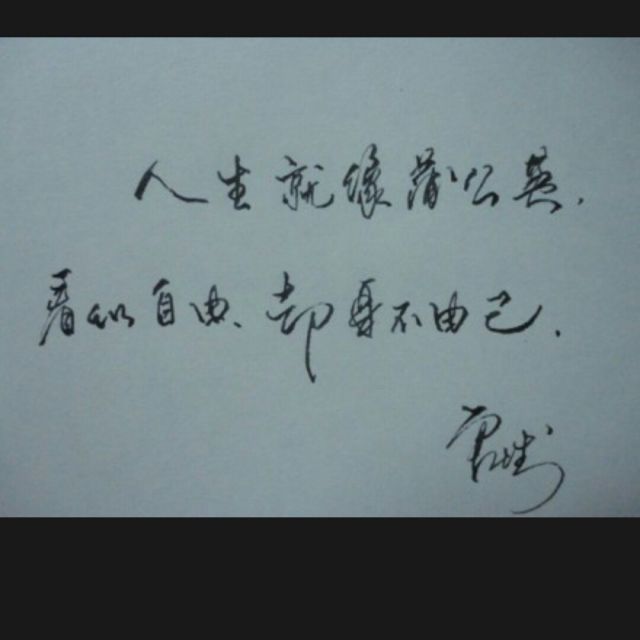 人生就像蒲公英.
看似自由、却身不由己.